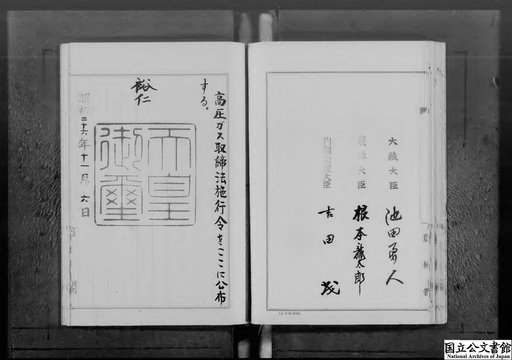 高圧ガス取締法施行令をここに公布
する。
裕仁
天皇
御璽
昭和二十六年十一月六日
大蔵大臣
池田勇人
大臣
根本龍太郎
内閣総理大臣
吉田茂
国立公文書館
National Archives of Japan